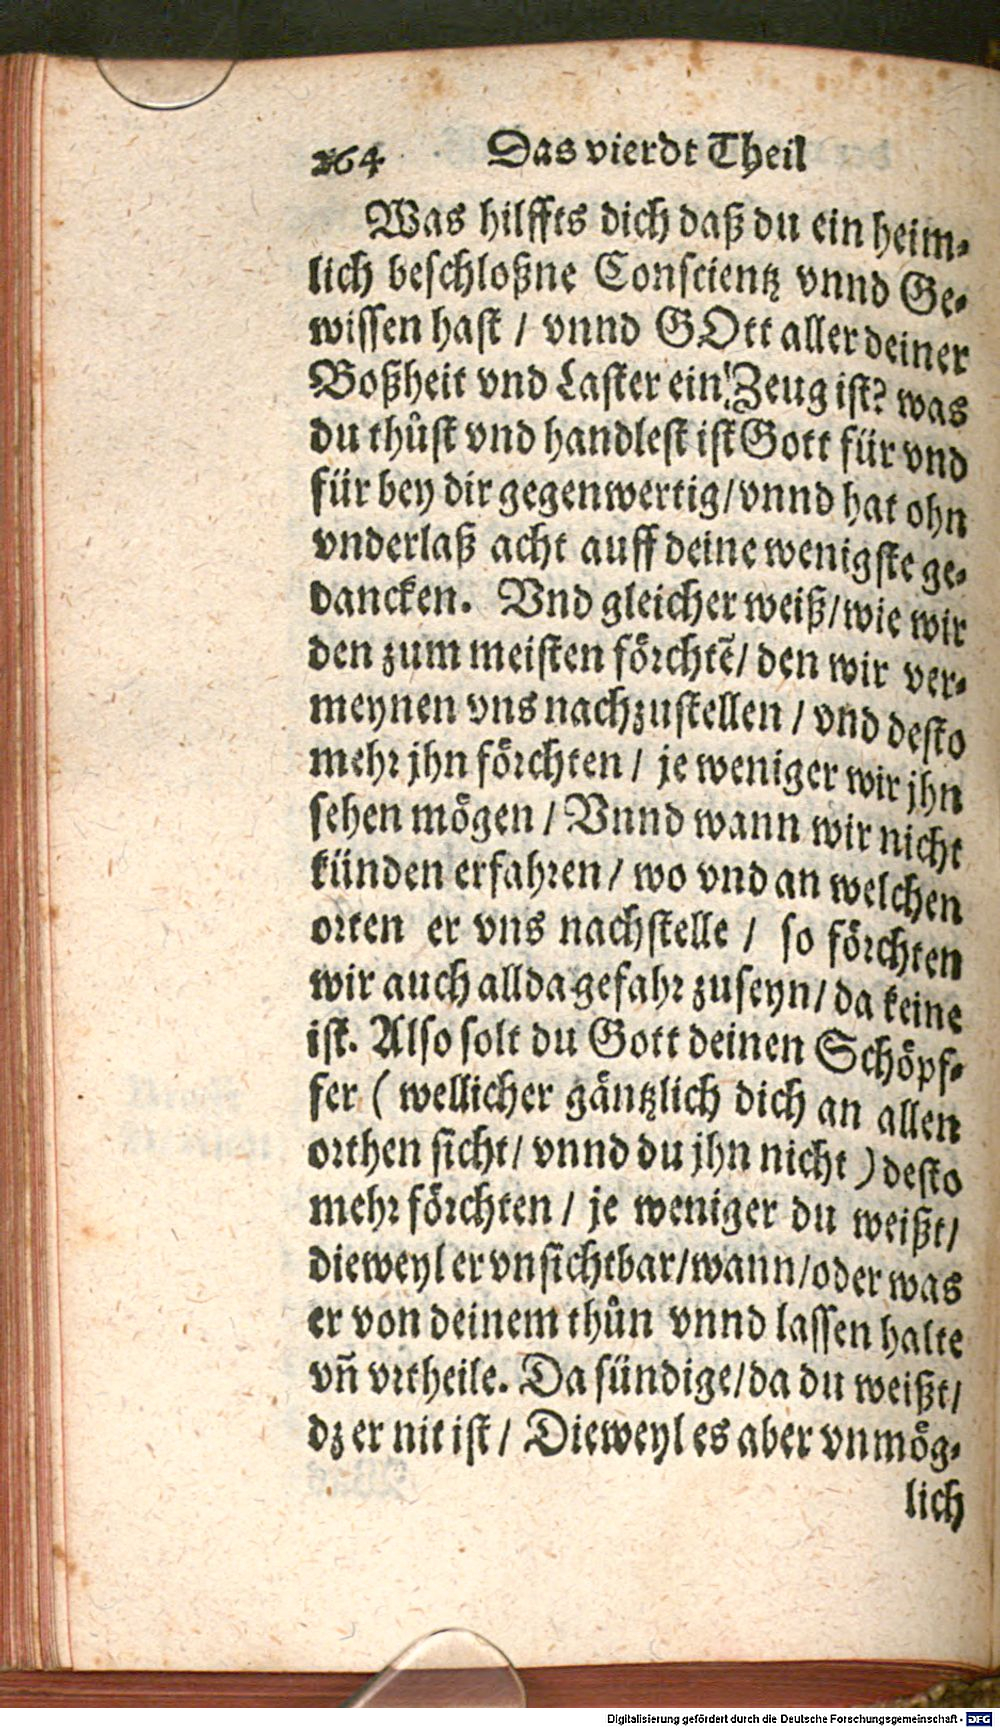 264 Das vierdt Theil
Was hilffts dich daß du ein heim-
lich beschloßne Conscientz vnnd Ge-
wissen hast / vnnd GOtt aller deiner
Boßheit vnd Laster ein Zeug ist? was
du thůst vnd handlest ist Gott für vnd
für bey dir gegenwertig/vnnd hat ohn
vnderlaß acht auff deine wenigste ge-
dancken. Vnd gleicher weiß/wie wir
den zum meisten förchtē/ den wir ver-
meynen vns nachzustellen / vnd desto
mehr jhn förchten / je weniger wir jhn
sehen mögen / Vnnd wann wir nicht
künden erfahren / wo vnd an welchen
orten er vns nachstelle / so förchten
wir auch allda gefahr zuseyn/ da keine
ist. Also solt du Gott deinen Schöpf-
fer ( wellicher gäntzlich dich an allen
orthen sicht/ vnnd du jhn nicht ) desto
mehr förchten / je weniger du weißt/
dieweyl er vnsichtbar/wann/oder was
er von deinem thůn vnnd lassen halte
vn̄ vrtheile. Da sündige/da du weißt/
dz er nit ist / Dieweyl es aber vnmög-
lich
Digitalisierung gefördert durch die Deutsche Forschungsgemeinschaft - DFG